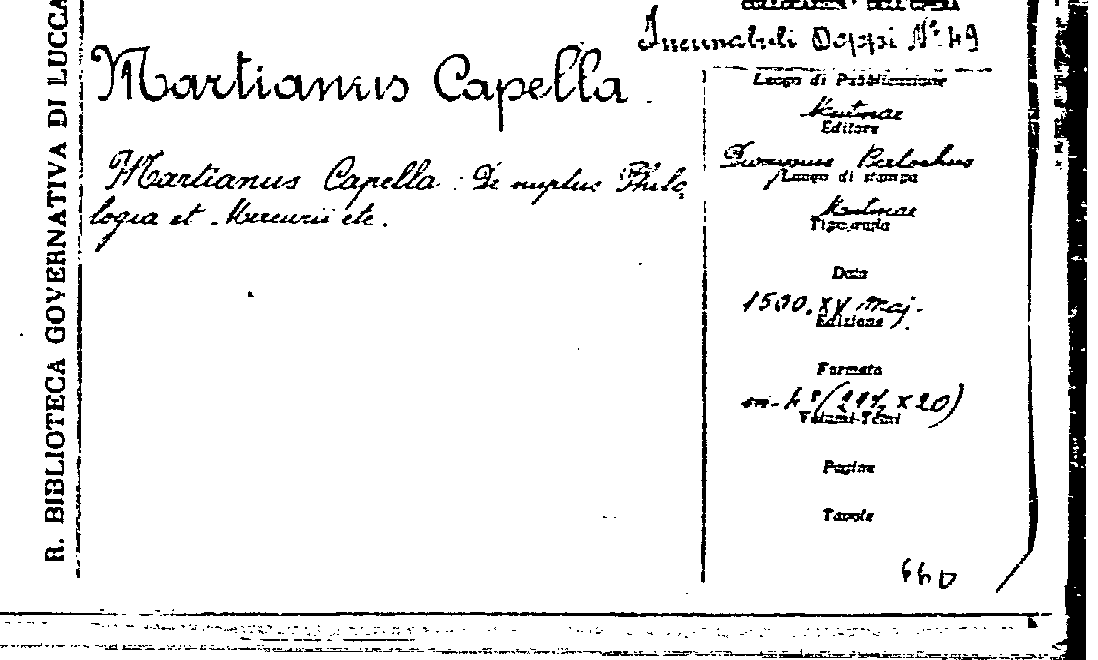 R. BIBLIOTECA GOVERNATIVA DI LUCCA
COLLOCAZIONE DELL'OPERA
Incunabuli Doppi Nº 49
Martianus Capella
Martianus Capella : De nuptiis Philo
logia et Mercurii etc.
Luogo di Pubblicazione
Mutinae
Editore
Dionysius Bertochus
Luogo di stampa
Mutinae
Tipografia
Data
1500. XV maj.
Edizione
Formato
in-4º ( x 20)
Volumi-Tomi
Pagine
Tavole